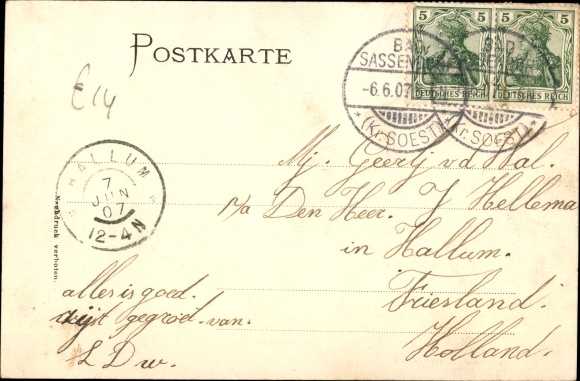 POSTKARTE
5 5
5 5
DEUTSCHES REICH
DEUTSCHES REICH
BAD SASSENDORF
-6.6.07
*(Kr. SOEST)*
BAD
(Kr. SOEST)*
£14
HALLUM
7
JUN
07
12-4N
Mj. Geertj v d Wal.
p/a Den Heer. J Hellema
in Hallum.
Friesland.
Holland.
alles is goed.
gegroet van.
L D w.
Nachdruck verboten.